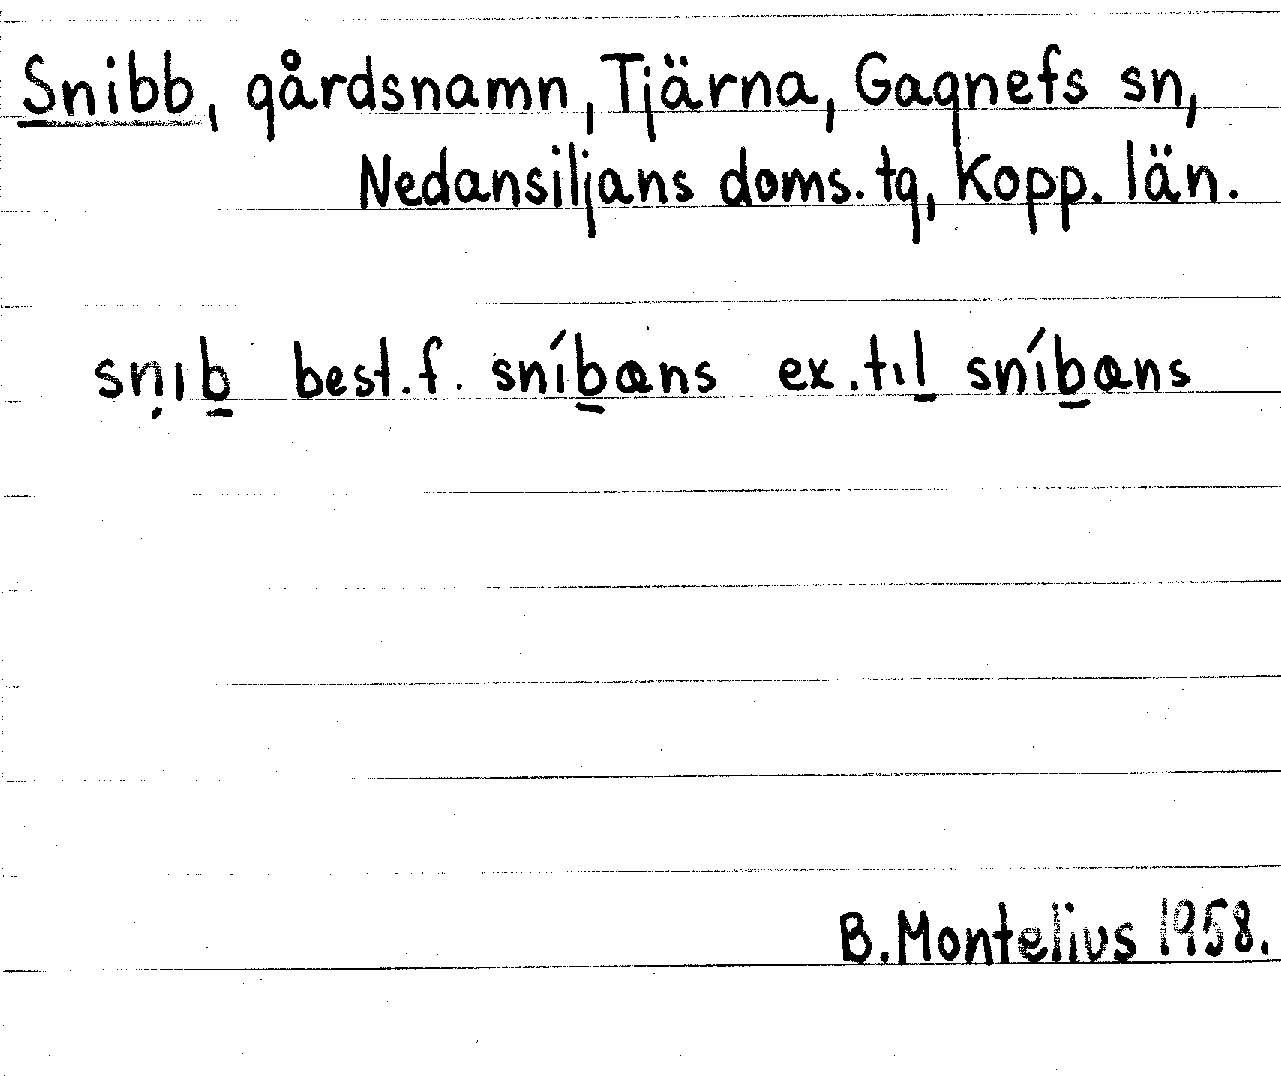 Snibb, gårdsnamn, Tjärna, Gagnefs sn,
Nedansiljans doms. tg, Kopp. län.
sṇıb̲ best.f. sníb̲ans ex. tıl̲ sníb̲ans
B. Montelius 1958.